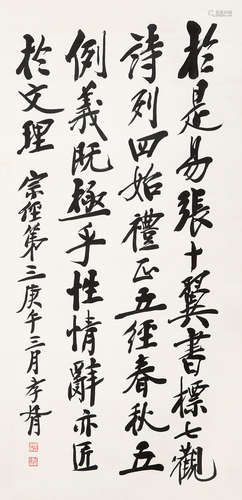 於是易張十翼書標七觀
詩列四始禮正五經春秋五
例義既極乎性情辭亦匠
於文理
宗經第三庚午三月孝胥